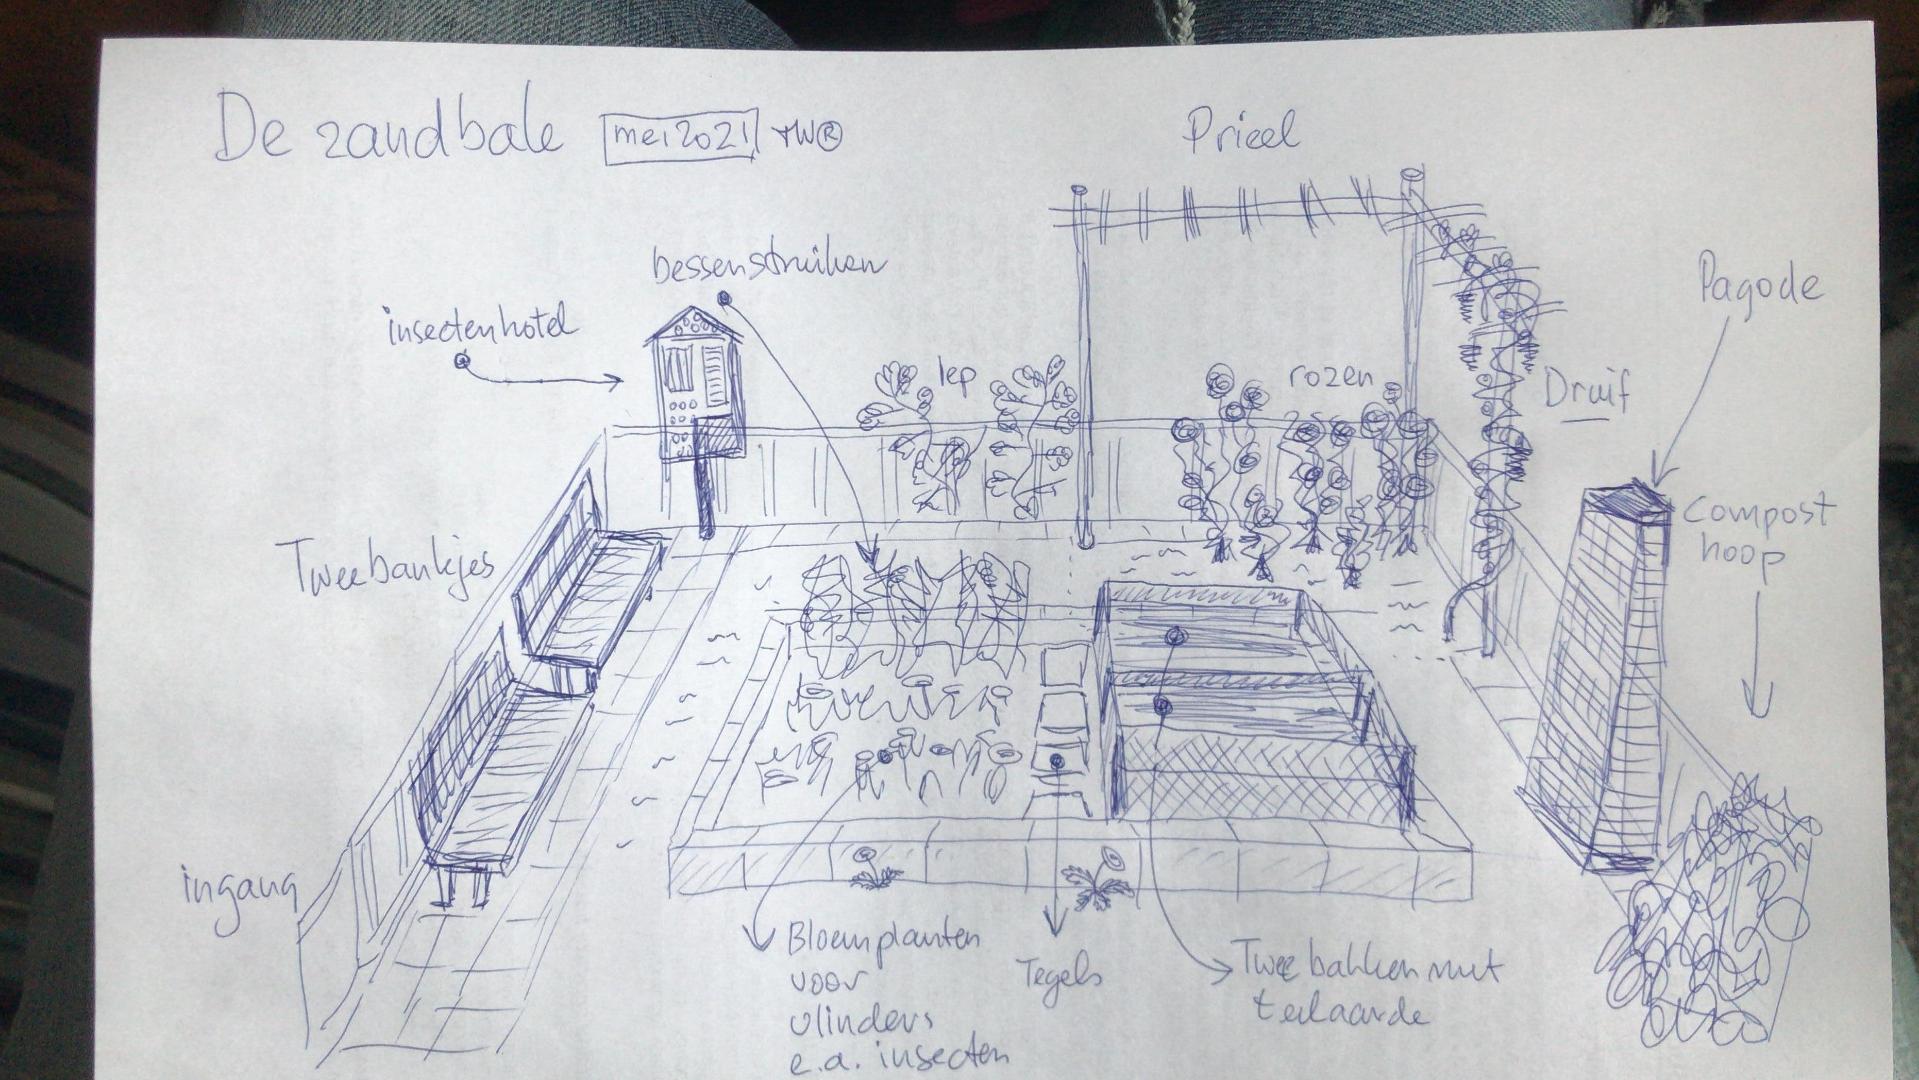 De zandbak
mei 2021
TW®
Prieel
bessenstruiken
insectenhotel
Pagode
Iep
rozen
Druif
compost
hoop
Twee bankjes
ingang
Bloemplanten
voor
vlinders
e.a. insecten
Tegels
Twee bakken met
teelaarde